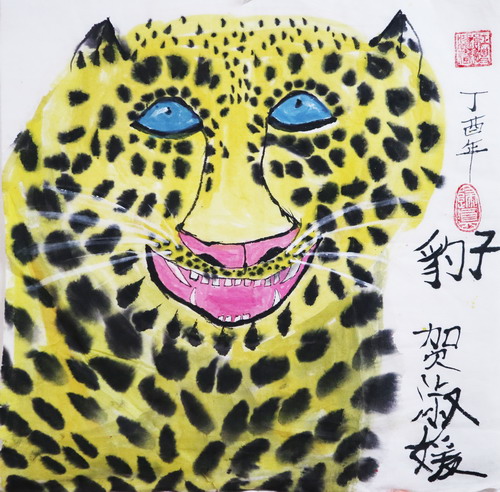 丁酉年
豹子
贺淑媛